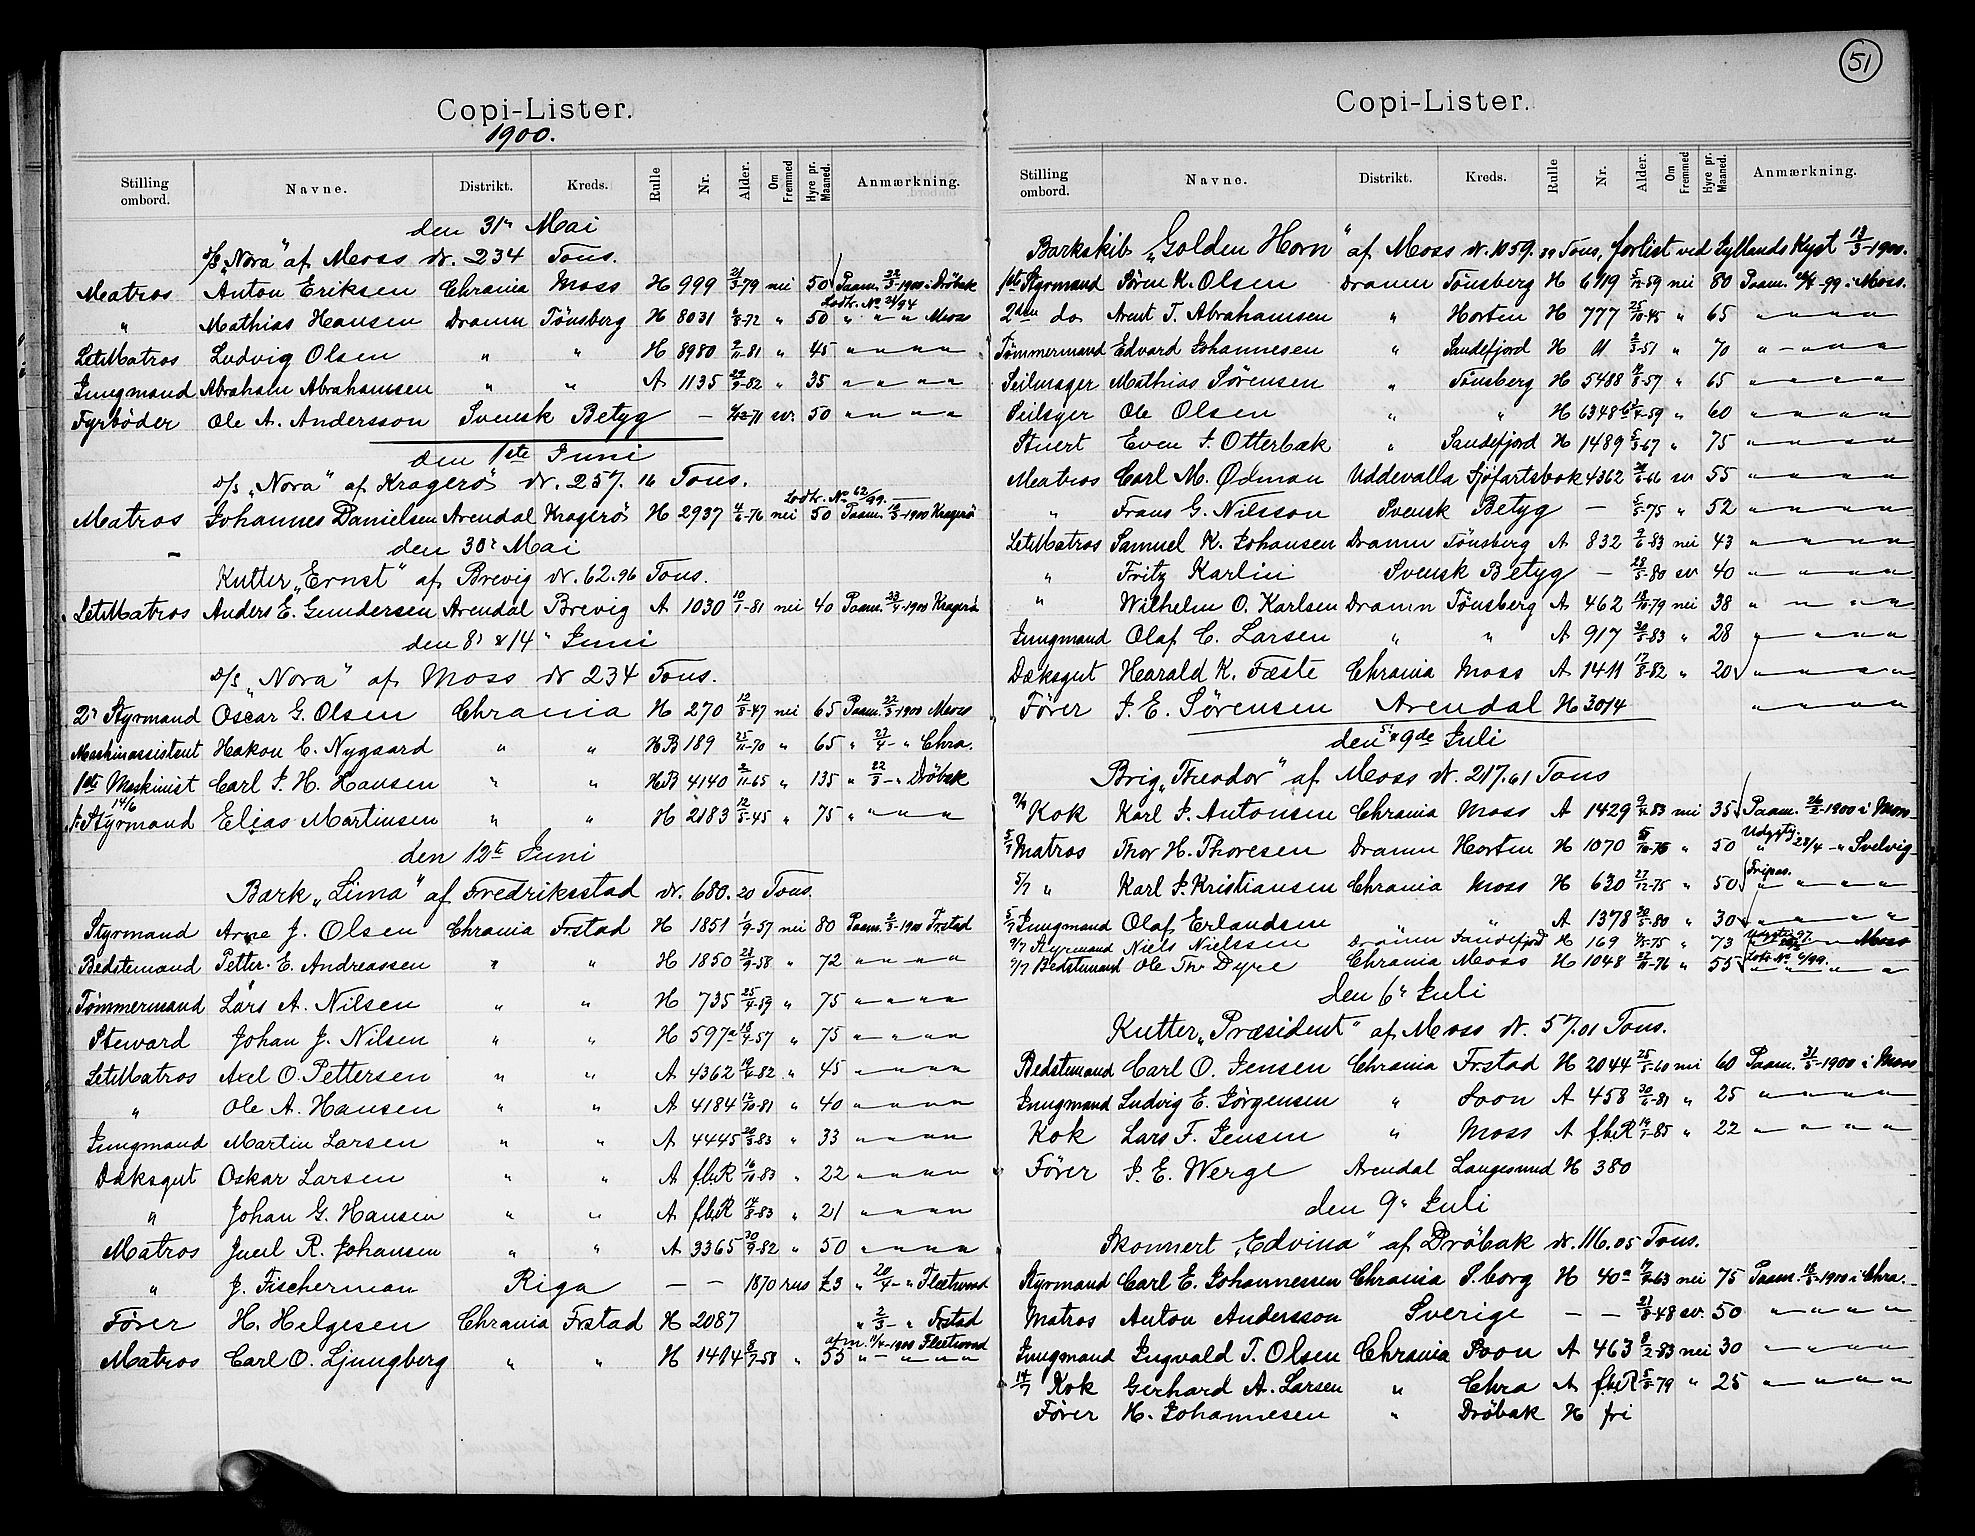 Copi-Lister.
1900.
Stilling ombord. Navne. Distrikt. Kreds. Rulle Nr. Alder. Om Fremmed Hyre pr. Maaned. Anmærkning.
den 31' Mai
D/S „Nora" af Moss dr. 234 Tons.
Matros Anton Eriksen Chrania Moss H 999 21/3-79 nei 50 Paam. 22/3-1900 i Dröbak
Lodtr. No 24/94
" Mathias Hansen Dramn Tönsberg H 8031 6/8-72 " 50 " " " Moss
LetMatros Ludvig Olsen " " H 8980 2/11-81 " 45 " " " "
Jungmand Abraham Abrahamsen " " A 1135 27/9-82 " 35 " " " "
Fyrböder Ole A. Andersson Svensk Betyg — 4/12-71 sv. 50 " " " "
den 1ste Juni
D/S „Nora" af Kragerö dr. 257.16 Tons.
Lodtr. No 62/99.
Matros Johannes Danielsen Arendal Kragerö H 2937 4/6-76 nei 50 Paam. 12/3-1900 Kragerö
den 30' Mai
Kutter „Ernst" af Brevig dr. 62.96 Tons.
LetMatros Anders E. Gundersen Arendal Brevig A 1030 10/1-81 nei 40 Paam. 23/4-1900 Kragerö
den 8' & 14' Juni
D/S „Nora" af Moss dr 234 Tons.
2' Styrmand Oscar G. Olsen Chrania H 270 12/8-47 nei 65 Paam. 22/3-1900 Moss
Maskinassistent Hakon C. Nygaard " " HB 189 25/11-70 " 65 " 27/4- " Chra.
1ste Maskinist Carl J. H. Hansen " " HB 4140 2/11-65 " 135 " 22/3- " Dröbak
14/6
1' Styrmand Elias Martinsen " " H 2183 12/5-45 " 75 " " " "
den 12te Juni
Bark „Lima" af Fredriksstad dr. 680.20 Tons.
Styrmand Arne J. Olsen Chrania Frstad H 1851 1/9-57 nei 80 Paam. 2/3-1900 Frstad
Bedstemand Petter E. Andreassen " " H 1850 23/9-58 " 72 " " " "
Tömmermand Lars A. Nilsen " " H 735 25/4-59 " 75 " " " "
Steward Johan J. Nilsen " " H 597a 18/4-57 " 75 " " " "
LetMatros Axel O. Pettersen " " A 4362 19/6-82 " 45 " " " "
" Ole A. Hansen " " A 4184 12/10-81 " 40 " " " "
Jungmand Martin Larsen " " A 4445 20/3-83 " 33 " " " "
Dæksgut Oskar Larsen " " A fbiR 16/10-83 " 22 " " " "
" Johan G. Hansen " " A fbiR 14/8-83 " 21 " " " "
Matros Juul R. Johansen " " A 3365 20/9-82 " 50 " " " "
" J. Fischerman Riga — — 1870 rus £3 " 20/4- " Fleetwood
Förer H. Helgesen Chrania Frstad H 2087 " 2/3- " Frstad
afm. 11/4-1900 Fleetwood
Matros Carl O. Ljungberg " " H 1414 8/7-58 " 55 " " " "
51
Copi-Lister.
Stilling ombord. Navne. Distrikt. Kreds. Rulle Nr. Alder. Om Fremmed Hyre pr. Maaned. Anmærkning.
Barkskib „Golden Horn" af Moss dr. 1059.39 Tons, forlist ved Jyllands Kyst 13/3-1900.
1ste Styrmand Sören K. Olsen Dramn Tönsberg H 6719 5/12-59 nei 80 Paam. 4-99 i Moss.
2den do Arnt T. Abrahamsen " Horten H 777 25/10-45 " 65 " " " "
Tömmermand Edvard Johannesen " Sandefjord H 2/3-51 " 70 " " " "
Seilmager Mathias Sörensen " Tönsberg H 5488 14/8-57 " 65 " " " "
Ole Olsen " " H 6348 -59 " 60 " " " "
Stuert Even J. Otterbæk " Sandefjord H 1489 5/3-67 " 75 " " " "
Matros Carl M. Ödman Uddevalla Sjöfartsbok 4362 24/6-66 sv 55 " " " "
" Frans G. Nilsson Svensk Betyg — 5/5-75 " 52 " " " "
LetMatros Samuel K. Johansen Dramn Tönsberg A 832 9/6-83 nei 43 " " " "
" Fritz Karlin Svensk Betyg — 28/5-80 sv 40 " " " "
" Wilhelm O. Karlsen Dramn Tönsberg A 462 18/10-79 nei 38 " " " "
Jungmand Olaf C. Larsen " " A 917 30/5-83 " 28 " " " "
Dæksgut Harald K. Fæste Chrania Moss A 1411 17/8-82 " 20 " " " "
Förer J. E. Sörensen Arendal H 3014 " " " "
den 5' & 9de Juli
Brig „Theodor" af Moss dr. 217.61 Tons
9/7 Kok Karl J. Antonsen Chrania Moss A 1429 9/4-83 nei 35 Paam. 26/2-1900 i Moss
Udgytj.
5/7 Matros Thor H. Thoresen Dramn Horten H 1070 5/10-75 " 50 " 28/4 - " Svelvig
Fripas.
5/7 " Karl J. Kristiansen Chrania Moss H 630 27/12-75 " 50 " " " "
5/7 Jungmand Olaf Erlandsen " A 1378 30/5-80 " 30 " " " "
9/7 Styrmand Niels Nielssen Dramn Sandefjord H 169 4/5-75 " 73 " Moss
Lodtr. No 4/99.
9/7 Bedstemand Ole Th. Dyre Chrania Moss H 1048 27/11-76 " 55 " " " "
den 6' Juli
Kutter „Præsident" af Moss dr. 57.01 Tons.
Bedstemand Carl O. Jensen Chrania Frstad H 2044 25/5-60 nei 60 Paam. 31/5-1900 i Moss
Jungmand Ludvig E. Jörgensen " Soon A 458 30/6-81 " 25 " " " "
Kok Lars F. Jensen " Moss A fbiR 14/1-85 " 22 " " " "
Förer J. E. Werge Arendal Langesund H 380
den 9' Juli
Skonnert „Edvina" af Dröbak dr. 116.05 Tons.
Styrmand Carl E. Johannessen Chrania S.borg H 40a -63 nei 75 Paam. 18/5-1900 i Chra.
Matros Anton Andersson Sverige — — 21/8-48 sv. 50 " " " "
Jungmand Ingvald T. Olsen Chrania Soon A 463 8/2-83 nei 30 " " " "
14/7 Kok Gerhard A. Larsen " Chra A fbiR 5/8-79 " 25 " " " "
Förer H. Johannesen " Dröbak H fri